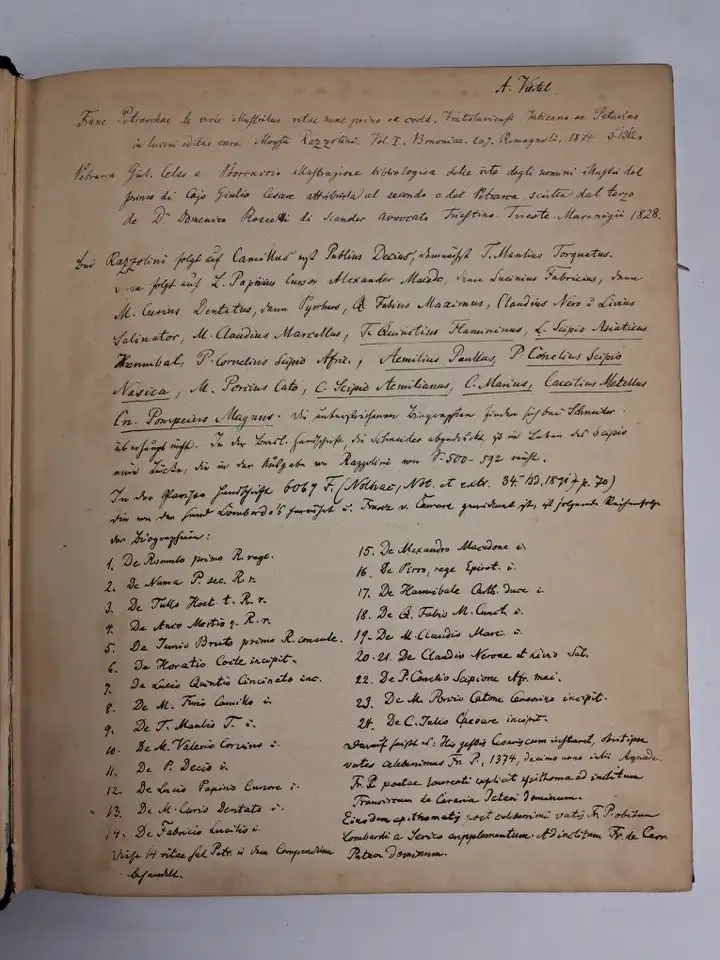 A. Viertel.
Franc Petrarchae de viris illustribus vitae nunc primo ex codd. Vratislaviensi Vaticano ac Patavino
in lucem editae cura Aloysii Razzolini. Vol. I. Bononiae. Caj. Romagnoli, 1874
Petrarca Giul. Celso e Boccaccio illustrazione bibliologica delle vite degli uomini illustri del
primo di Cajo Giulio Cesare attribuita al secondo e del Petrarca, scritta dal terzo
de Dr. Domenico Rossetti di Scander avvocato Triestino. Trieste. Marenigii 1828.
Bei Razzolini folgt auf Camillus erst Publius Decius, demnächst T. Manlius Torquatus.
folgt auf L. Papirius Cursor Alexander Macedo, dann Lucinius Fabricius, dann
M. Curius Dentatus, dann Pyrrhus, Q Fabius Maximus, Claudius Nero u Livius
Salinator, M. Claudius Marcellus, T. Quinctius Flamininus, L. Scipio Asiaticus
Hannibal, P. Cornelius Scipio Afric., Aemilius Paullus, P. Cornelius Scipio
Nasica, M. Porcius Cato, C. Scipio Aemilianus, C. Marius, Caecilius Metellus
Cn. Pompeius Magnus. Die unterstrichenen Biographien finden sich bei Schneider
überhaupt nicht. In der Bresl. Handschrift, die Schneider abgedruckt, ist im Leben des Scipio
eine Lücke, die in der Ausgabe von Razzolini von S. 500-592 reicht.
In der Pariser Handschrift 6069 F. (Nolhac, Not. et extr. 34. Bd. 1891 p. 70)
die von der Hand Lombardo's herrührt u. Franz v. Carrara gewidmet ist, ist folgende Reihenfolge
der Biographien:
1. De Romulo primo R. rege.
2. De Numa P. sec. R. r.
3. De Tullo Host. t. R. r.
4. De Anco Martio q. R. r.
5. De Junio Bruto primo R. consule.
6. De Horatio Cocle incipit.
7. De Lucio Quintio Cincinato inc.
8. De M. Furio Camillo i.
9. De T. Manlio T. i.
10. De M. Valerio Corvino i.
11. De P. Decio i.
12. De Lucio Papirio Cursore i.
13. De M. Curio Dentato i.
14. De Fabricio Lucilio i.
Diese 14 vitae hat Petr. in dem Compendium
behandelt.
15. De Alexandro Macedone i.
16. De Pirro, rege Epirot. i.
17. De Hannibale Cath. duce i.
18. De Q. Fabio M. Cunct. i.
19. De M. Claudio Marc. i.
20.21. De Claudio Nerone et Livio Sal.
22. De P. Cornelio Scipione Afr. mai.
23. De M. Porcio Catone Censorino incipit.
24. De C. Julio Caesare incipit.
Darauf heißt es: His gestis Cesaris cum instaret, obiit ipse
vates celeberrimus Fr. P., 1374, decimo nono iulii Arquade.
Fr. P. poetae laureati explicit epithoma ad inclitum
Franciscum de Carraria Patavi dominum.
Eiusdem epithomatis post celeberrimi vatis Fr. P. obitum
Lombardi a Serico supplementum. Ad inclitum Fr. de Carr.
Patav dominum.